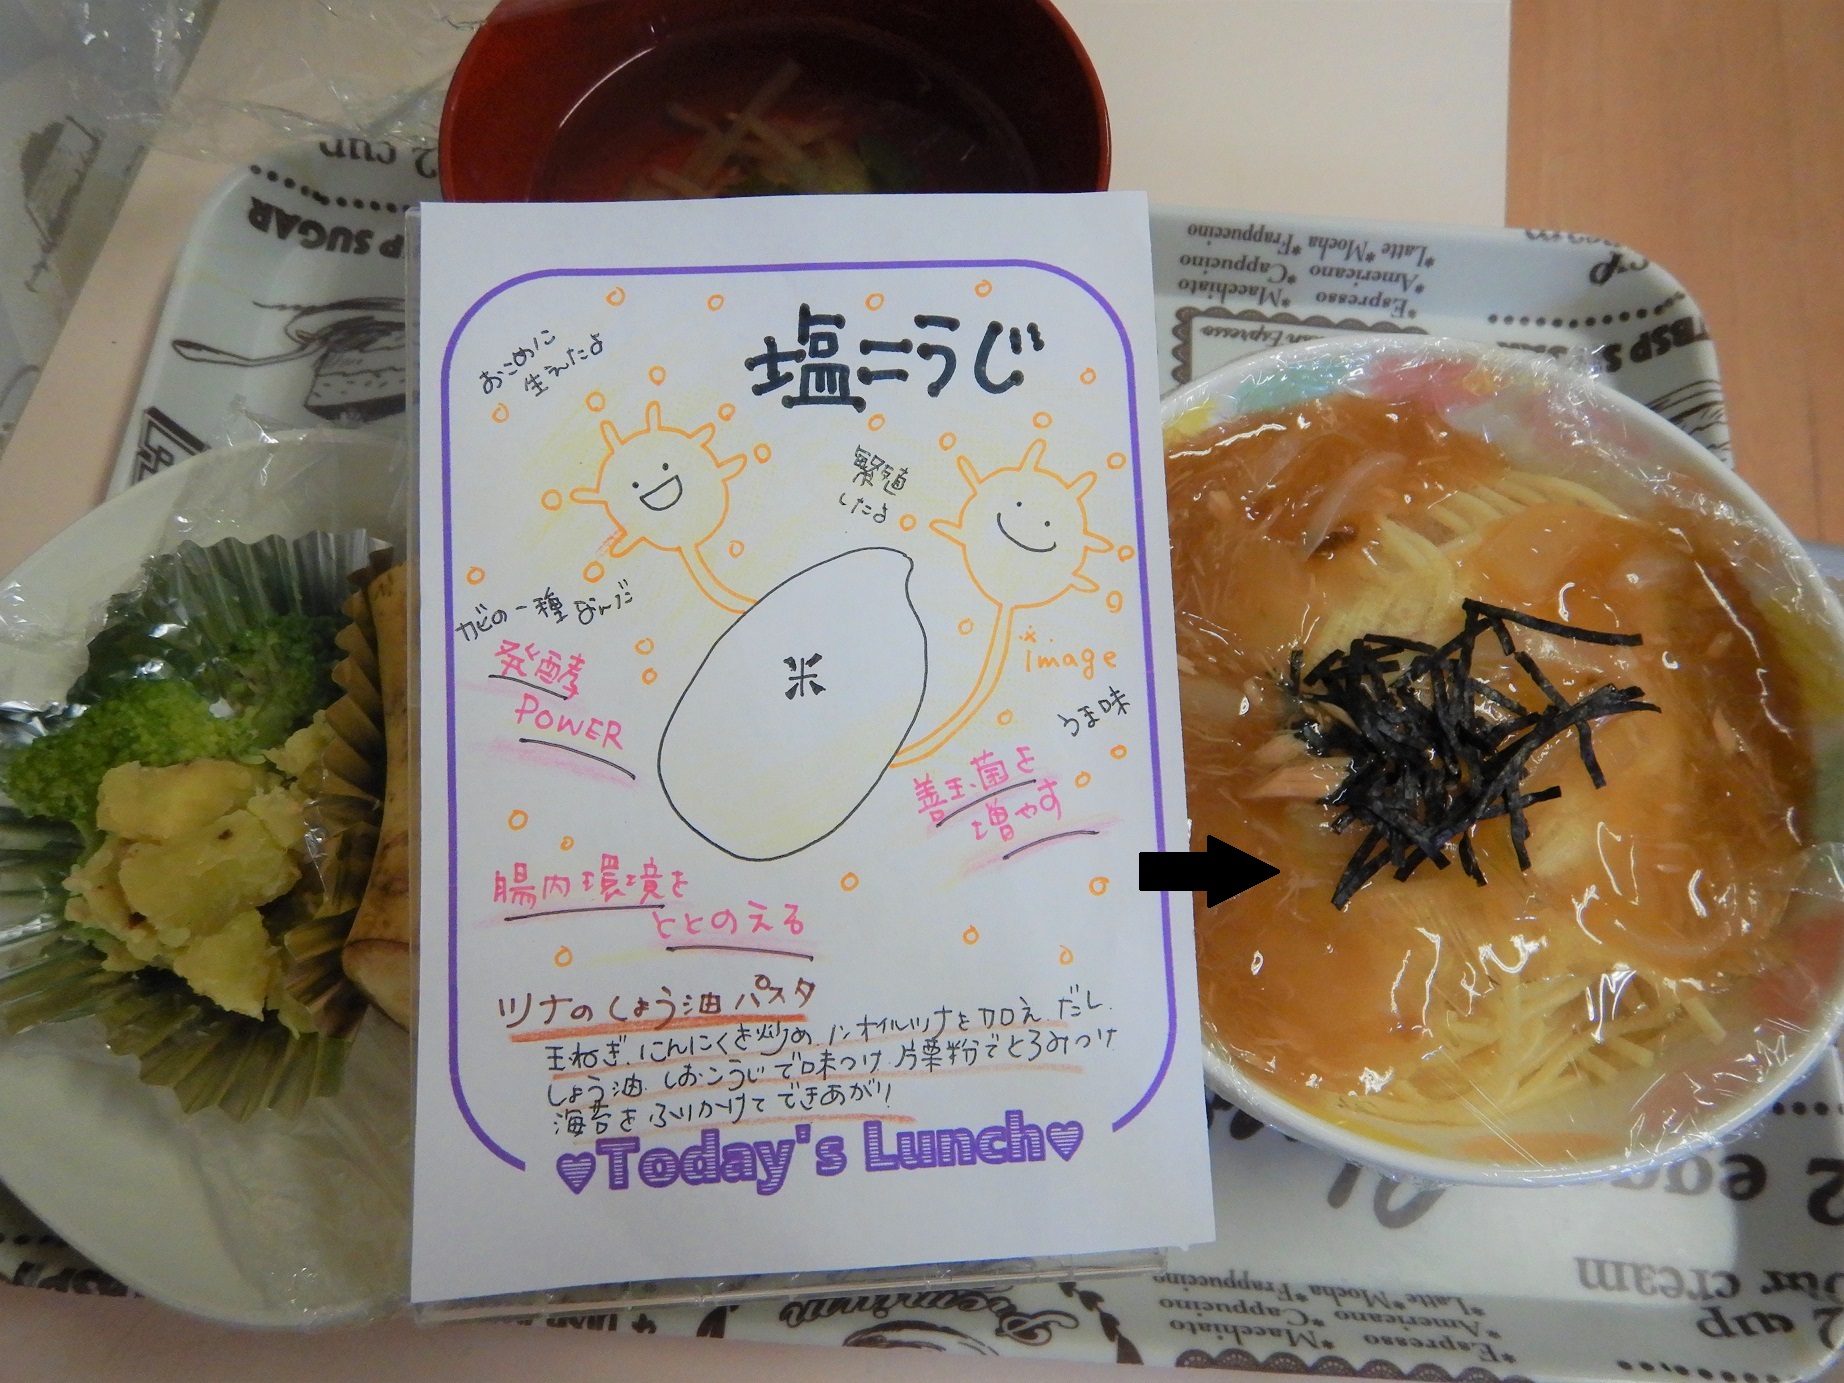 塩こうじ
おこめに
生えたよ
繁殖
したよ
カビの一種なんだ
発酵
POWER
米
※
image
うま味
善玉菌を
増やす
腸内環境を
ととのえる
ツナのしょう油パスタ
玉ねぎ、にんにくを炒め、ノンオイルツナを加え、だし、
しょう油、しおこうじで味つけ、片栗粉でとろみつけ
海苔をふりかけてできあがり!
♥Today's Lunch♥
2 cup
TBSP SUGAR
*Latte*Mocha*Frappuccino
Americano *Cappuccino
*Espresso *Macchiato
TBSP SUGAR
2 egg
2 cup
our cream
*Latte*Mocha*Frappuccino
Americano *Cappuccino
*Espresso *Macchiato